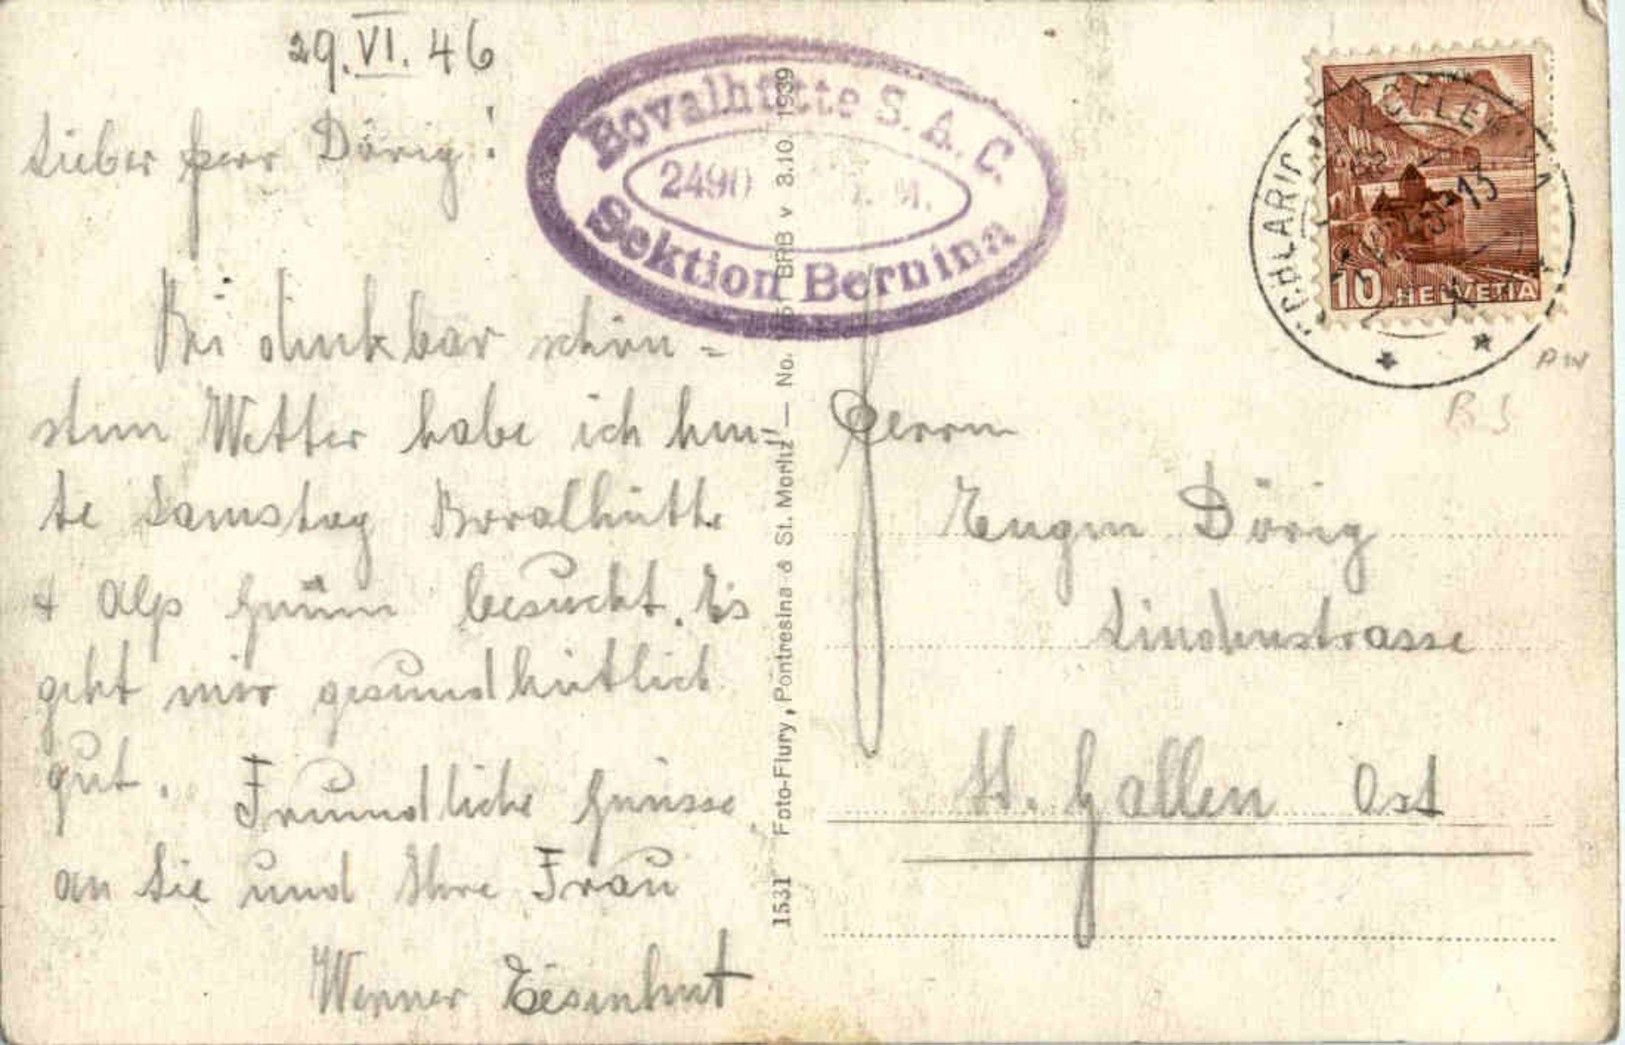 29.VI.46
Lieber Herr Dörig!
Bei denkbar schön=
stem Wetter habe ich heu=
te Samstag Bovalhütte
& Alp Grüm besucht. Es
geht mir gesundheitlich
gut. Freundliche Grüsse
an Sie und Ihre Frau
Werner Eisenhut
Bovalhütte S. A. C.
2490 M.
Sektion Bernina
1531 Foto-Flury, Pontresina & St. Moritz — No. BRB v 3.10. 1939
10 HELVETIA
Herrn
Eugen Dörig
Lindenstrasse
St. Gallen Ost